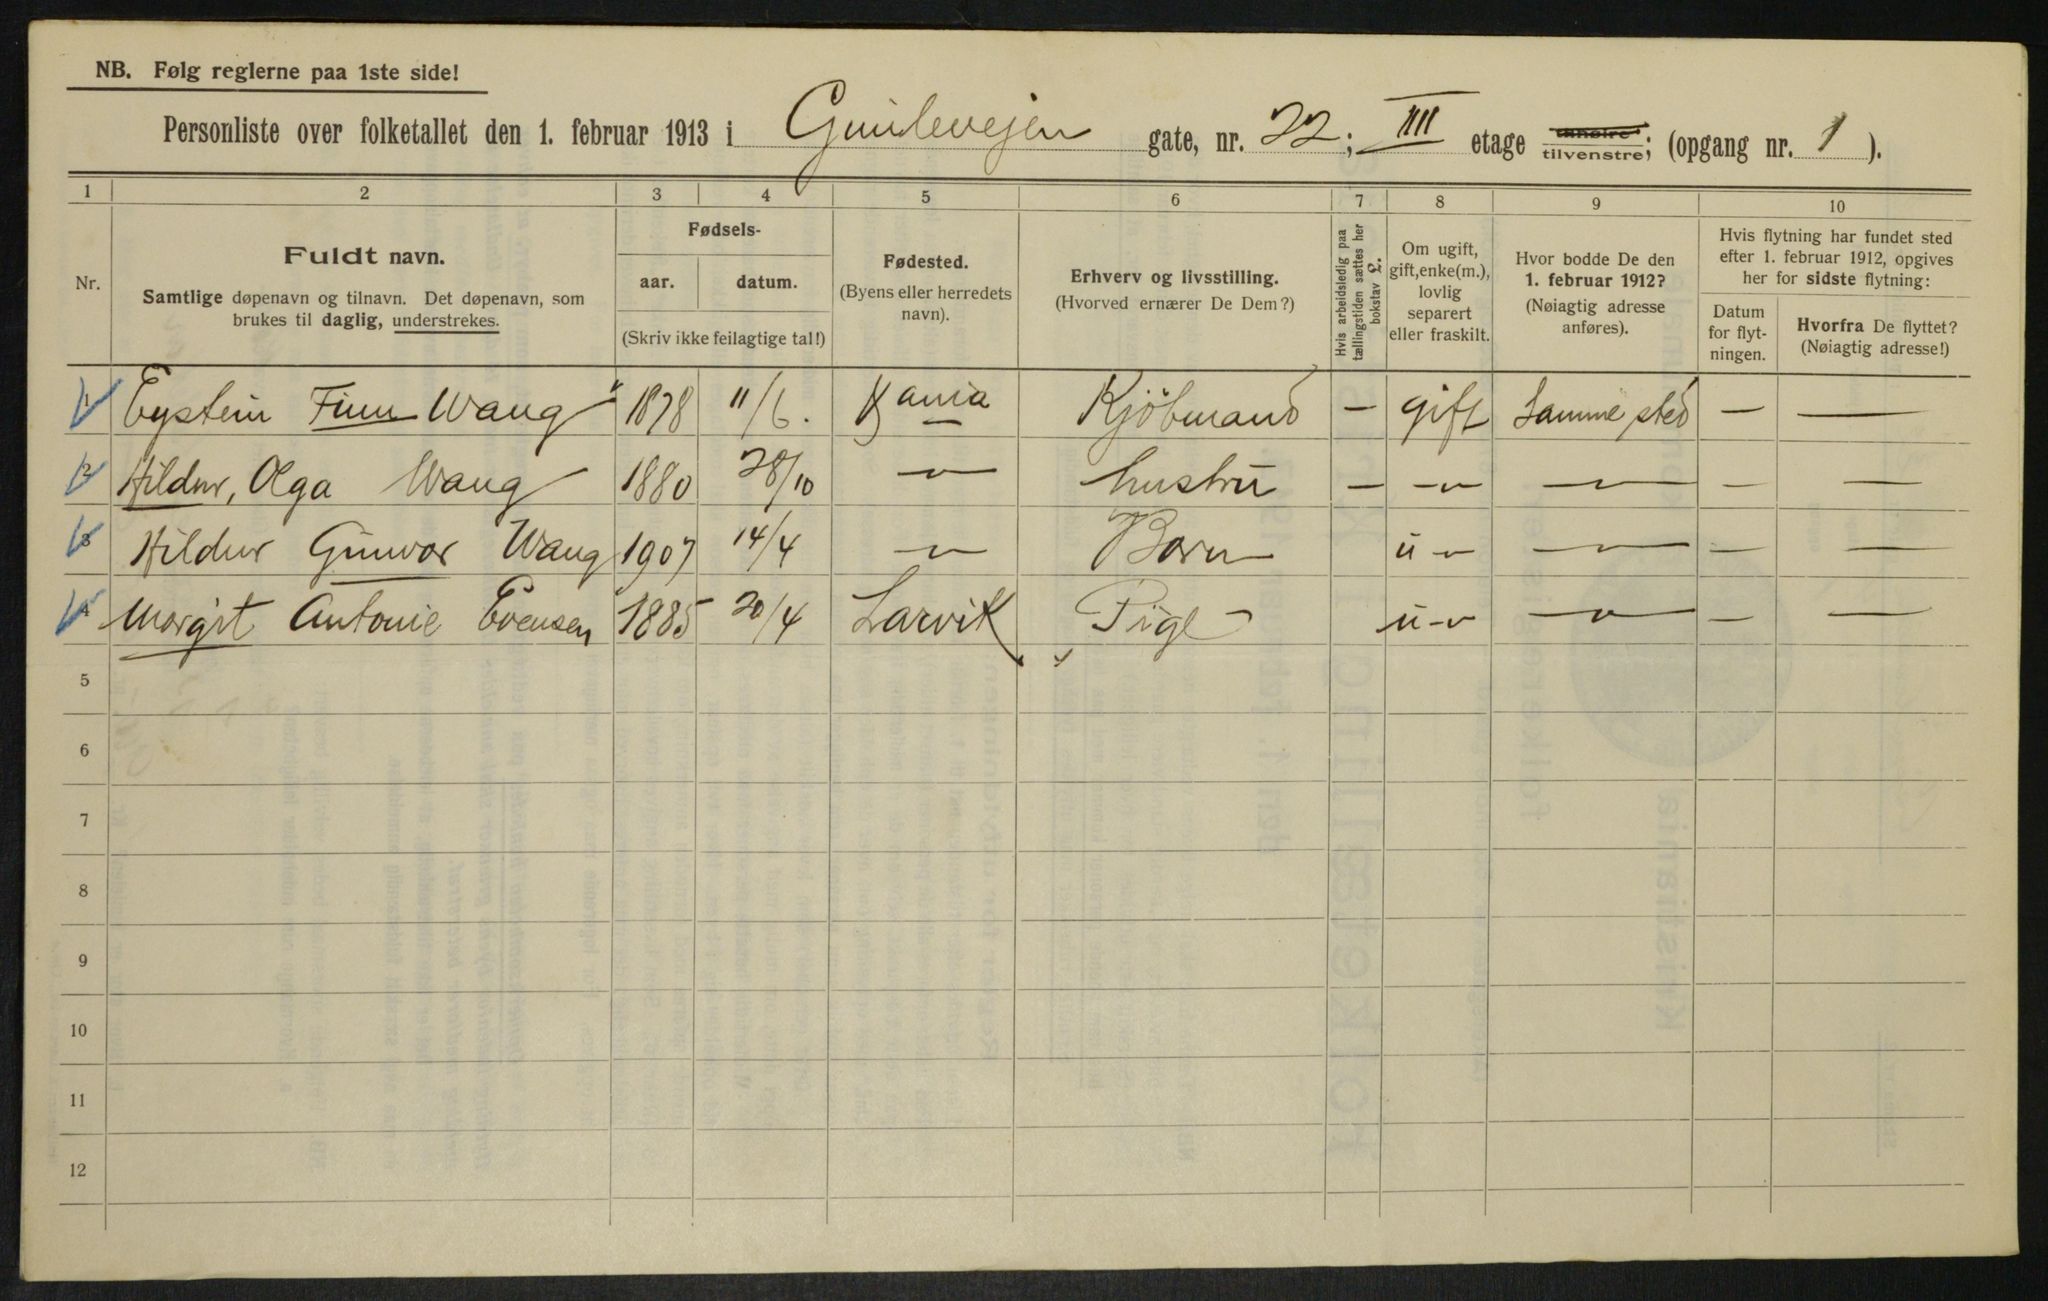 NB. Følg reglerne paa 1ste side!
Personliste over folketallet den 1. februar 1913 i Gimlevejen gate, nr. 22; IIII etage tilhøire tilvenstre; (opgang nr. 1).
1 2 3 4 5 6 7 8 9 10
Nr.
Fuldt navn.
Samtlige døpenavn og tilnavn. Det døpenavn, som
brukes til daglig, understrekes.
Fødsels-
aar. datum.
(Skriv ikke feilagtige tal!)
Fødested.
(Byens eller herredets
navn).
Erhverv og livsstilling.
(Hvorved ernærer De Dem?)
Hvis arbeidsledig paa
tællingstiden sættes her
bokstav l.
Om ugift,
gift, enke(m.),
lovlig
separert
eller fraskilt.
Hvor bodde De den
1. februar 1912?
(Nøiagtig adresse
anføres).
Hvis flytning har fundet sted
efter 1. februar 1912, opgives
her for sidste flytning:
Datum
for flyt-
ningen.
Hvorfra De flyttet?
(Nøiagtig adresse!)
1 Eystein Finn Wang 1878 11/6. Kania Kjöbmand — gift Samme sted — —
2 Hildur, Olga Wang 1880 28/10 —"— hustru — —"— —"— — —
3 Hildur Gunvor Wang 1907 14/4 —"— Barn u —"— — —
4 Margit Antonie Evensen 1885 20/4 Larvik Pige u —"— — —
5
6
7
8
9
10
11
12